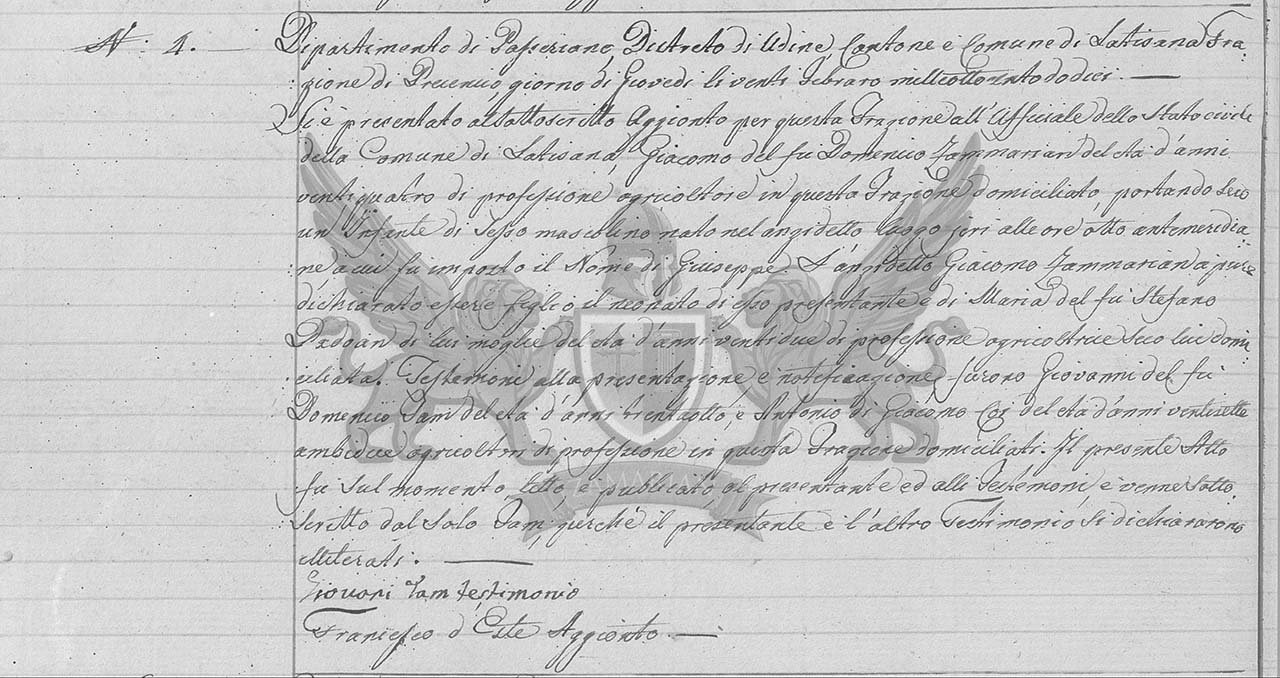 N. 4.
Dipartimento di Passeriano, Distreto di Udine Cantone e Comune di Latisana Fra-
:zione di Precenico, giorno di Giovedi li venti Febraro milleottocento dodici.
Si è presentato al sottoscritto Aggionto per questa Frazione all'Uffiziale dello Stato civile
della Comune di Latisana, Giacomo del fu Domenico Zammarian del età d'anni
ventiquatro di professione agricoltore in questa Frazione domiciliato, portando seco
un Infante di sesso mascolino nato nel anzidetto luogo jeri alle ore otto antemeridia-
:ne a cui fu imposto il Nome di Giuseppe. L'anzidetto Giacomo Zammarian a pure
dichiarato essere figlio il neonato di esso presentante e di Maria del fu Stefano
Padoan di lui moglie del età d'anni ventidue di professione agricoltrice seco lui domi-
:ciliata. Testemoni alla presentazione e notificazione furono Giovanni del fu
Domenico Tam del età d'anni trentaotto, e Antonio di Giacomo Cos del età d'anni ventisette
ambidue agricoltori di professione in questa Frazione domiciliati. Il presente Atto
fu sul momento letto e publicato al presentante ed alli Testemoni e venne sotto
scritto dal solo Tam, perchè il presentante e l'altro Testimonio, si dichiararono
illiterati.
Giovani Tam testimonio
Francesco d'Este Aggionto